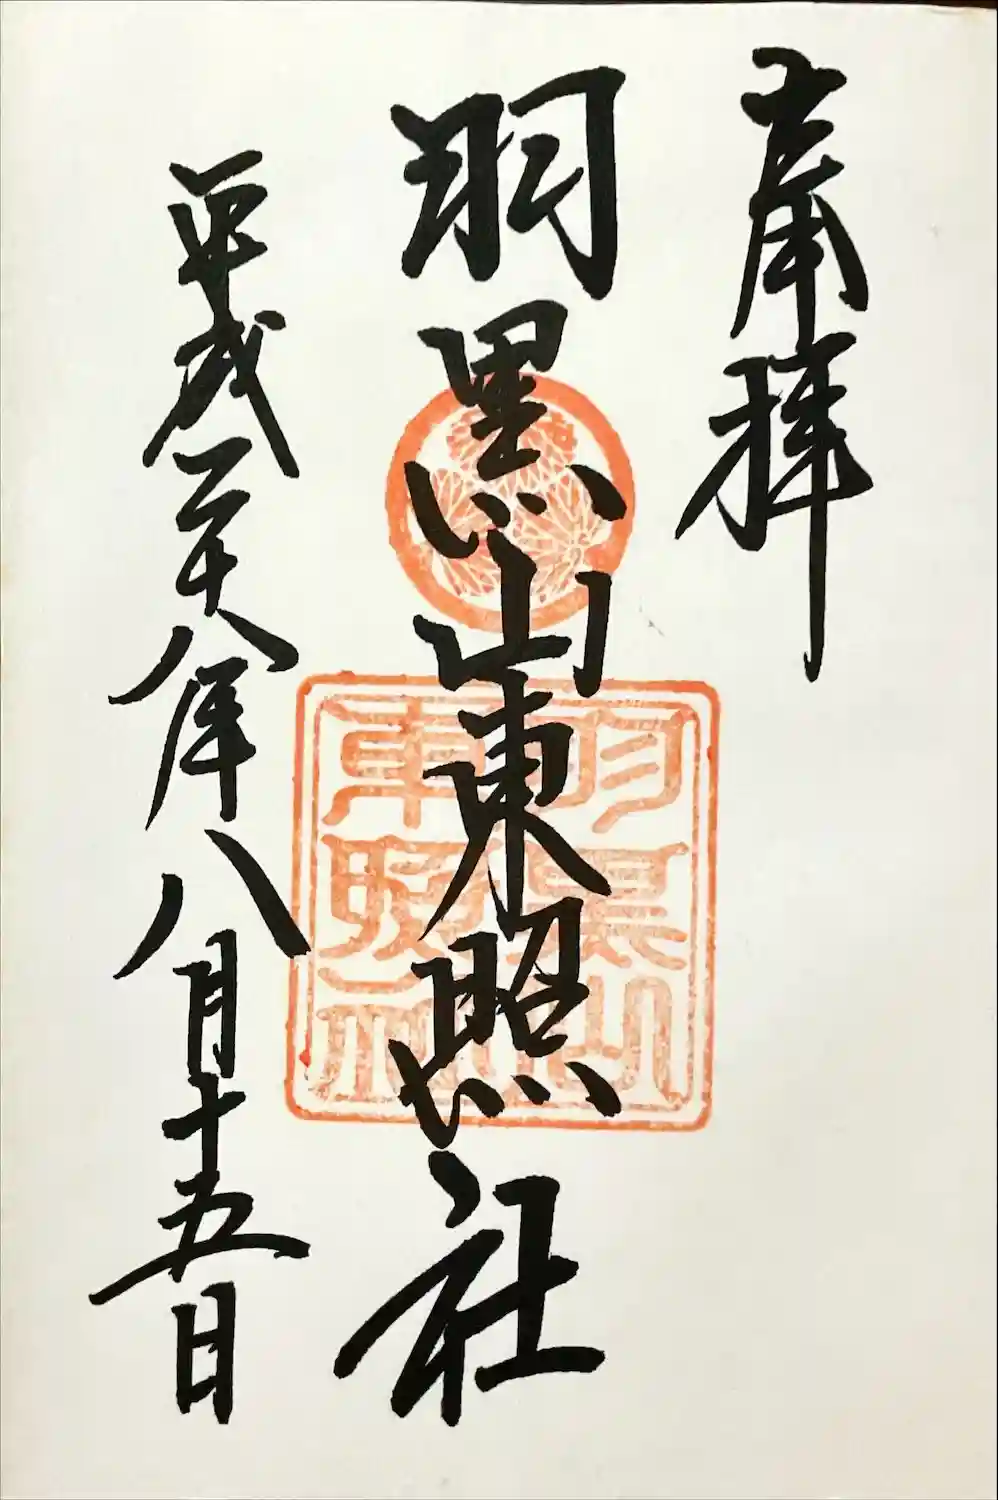 奉拝
羽黒山東照社
平成二十八年八月十五日
羽黒山
東照社